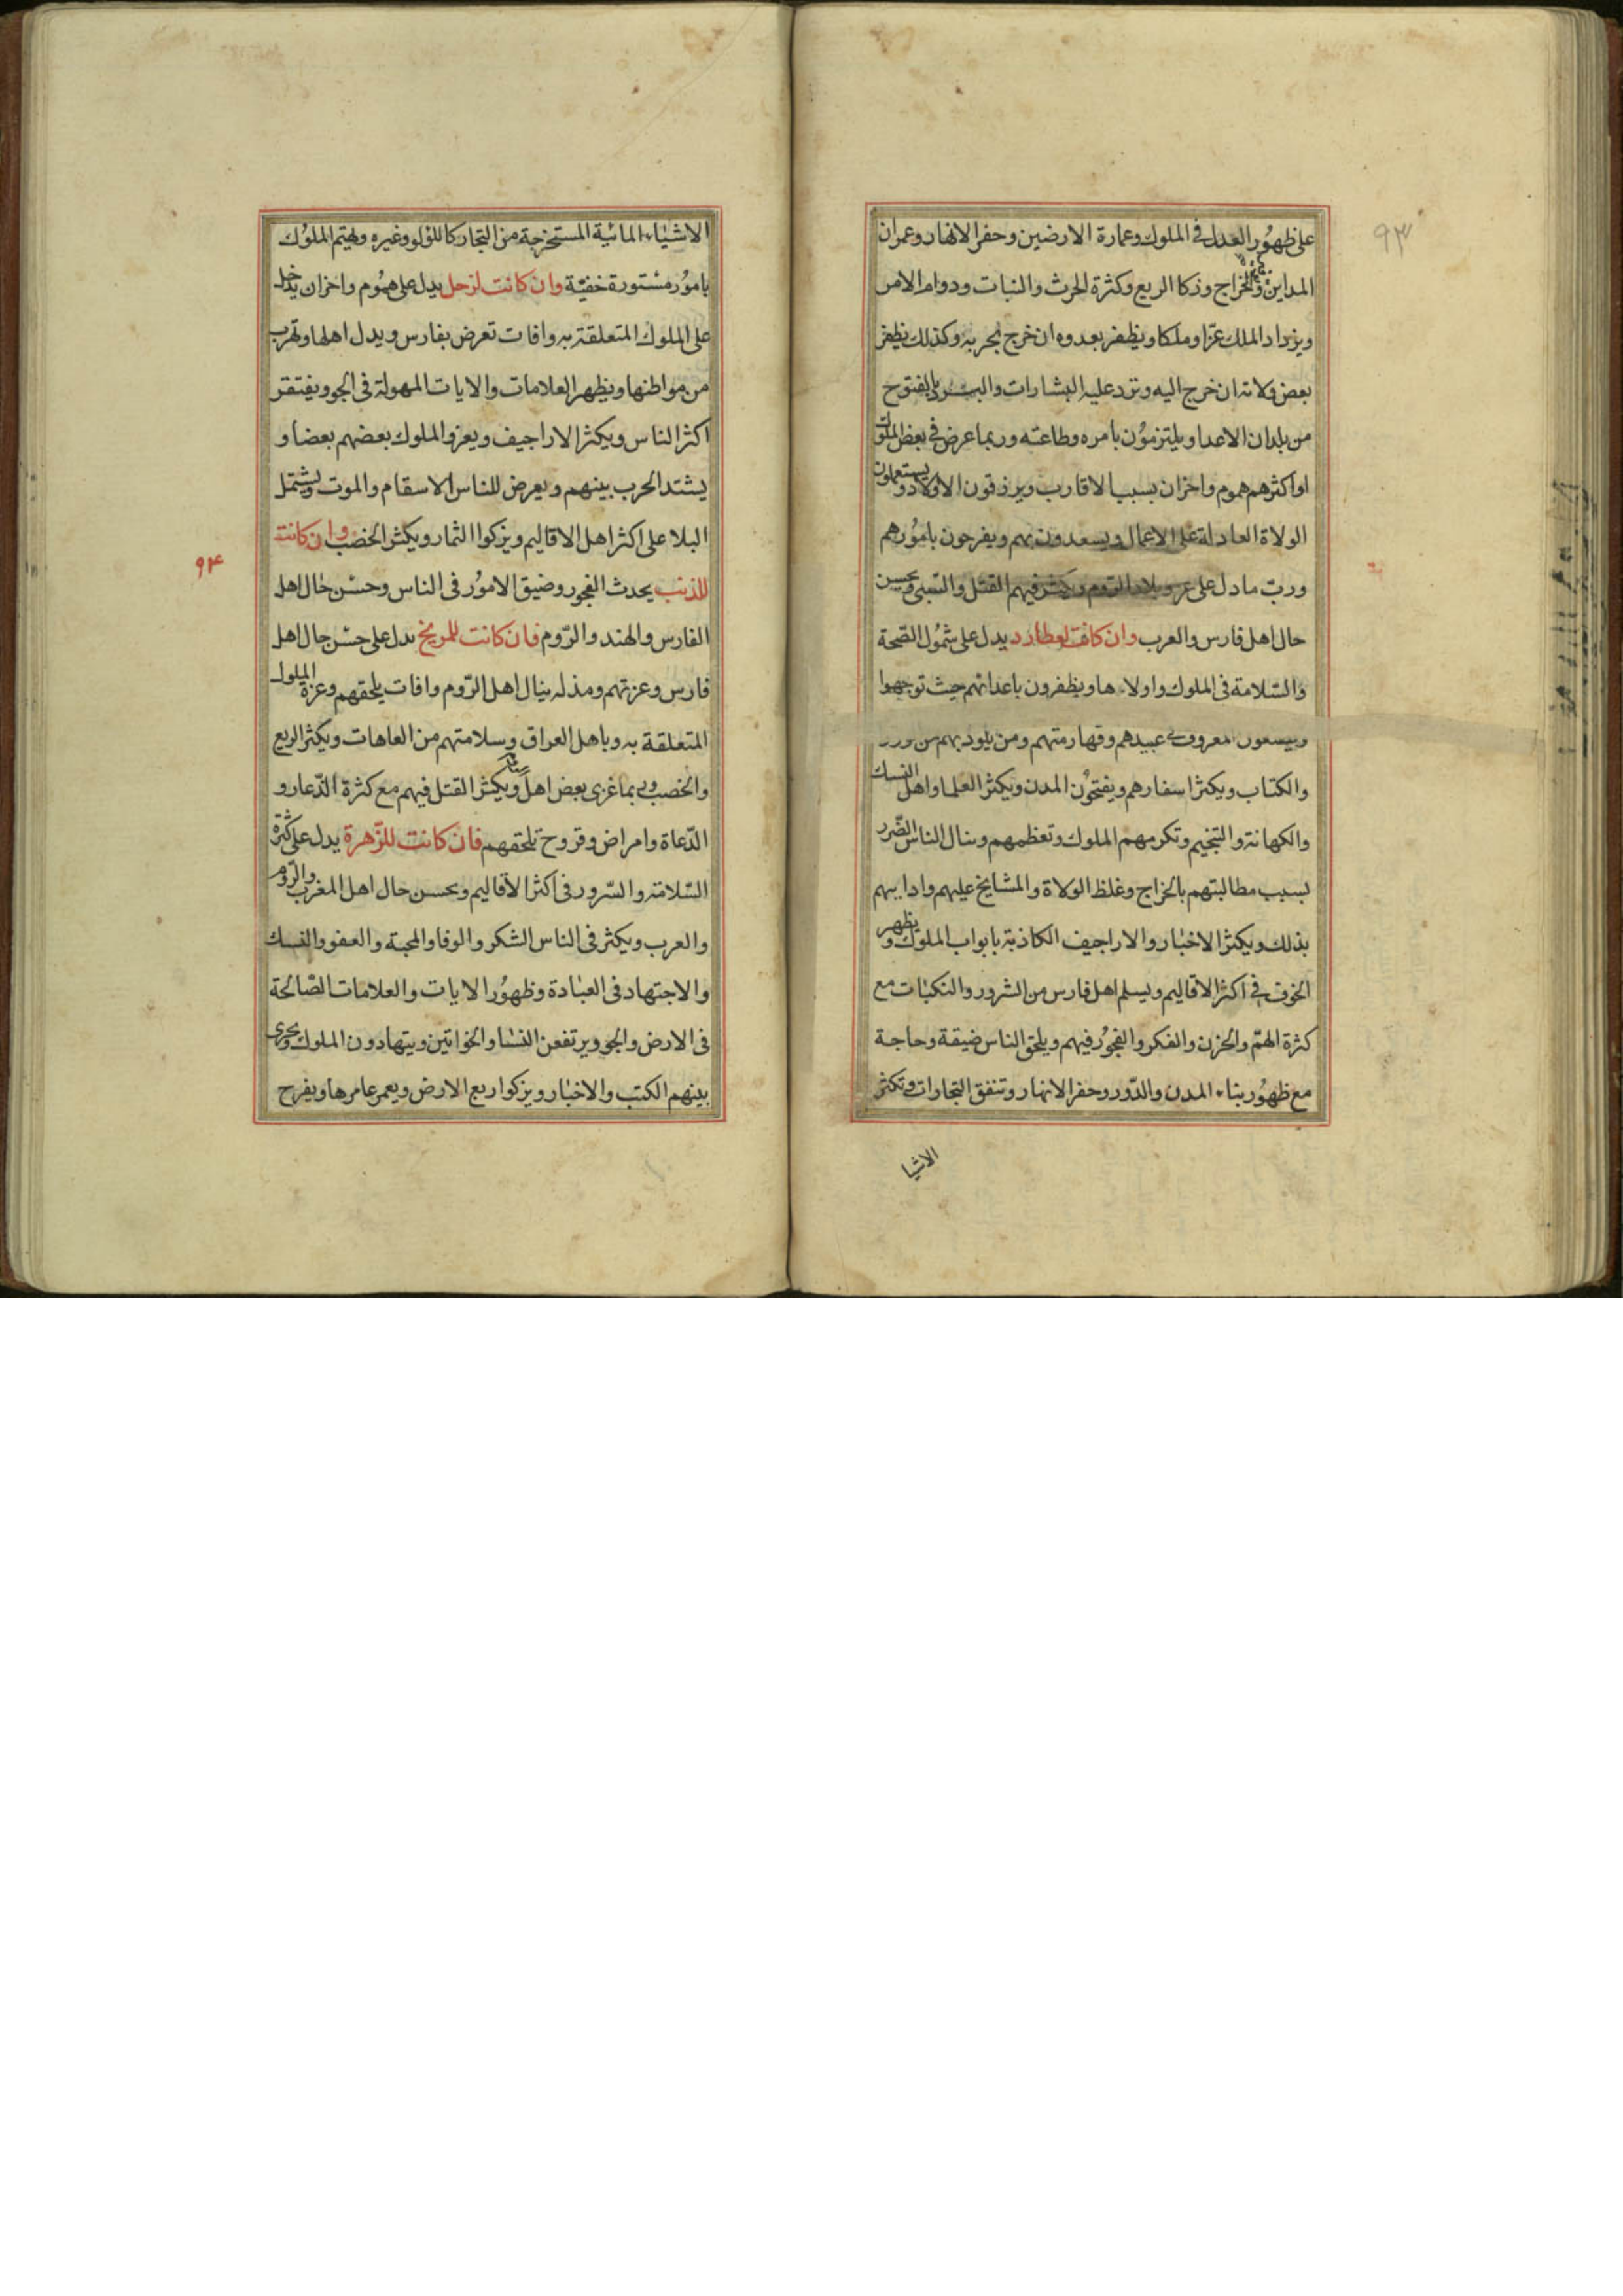 ٩٣
على ظهور العدل في الملوك وعمارة الارضين وحفر الانهار وعمران
المداين والخراج وزكا الريع وكثرة الحرث والنبات ودوام الامن
ويزداد الملك عزّا وملكا ويظفر بعدوه ان خرج لحربه وكذلك يظفر
بعض ولاته ان خرج اليه وترد عليه البشارات بالفتوح
من بلدان الاعدا ويلتزمون بامره وطاعته وربما عرض في بعض الملوك
او اكثرهم هموم واحزان بسبب الاقارب ويرزقون الاولاد ويستعملون
الولاة العادلة على الاعمال ويسعدون بهم ويفرحون بامورهم
وربّ ما دل على بلاد الروم ويكثر فيهم القتل والسّبى ويحسن
حال اهل فارس والعرب وان كانت لعطارد يدل على شمول الصّحة
والسّلامة فى الملوك واولادها ويظفرون باعدائهم حيث توجهوا
المعروف عبيدهم وقهارمتهم ومن يلوذ بهم من
والكتاب ويكثر اسفارهم ويفتحون المدن ويكثر العلما واهل النسك
والكهانة والتنجيم وتكرمهم الملوك وتعظمهم وينال الناس الضّرر
بسبب مطالبتهم بالخراج وغلظ الولاة والمشايخ عليهم
بذلك ويكثر الاخبار والاراجيف الكاذبة بابواب الملوك ويظهر
الخوف فى اكثر الاقاليم ويسلم اهل فارس من الشرور والنكبات مع
كثرة الهمّ والحزن والفكر والفجور فيهم ويلحق الناس ضيقة وحاجة
مع ظهور بناء المدن والدّور وحفر الانهار وتنفق التجارات وتكثر
الاشيا
الاشياء المائية المستخرجة من البحار كاللؤلؤ وغيره ويهتم الملوك
بامور مستورة خفيّة وان كانت لزحل يدل على هموم واحزان يدخل
على الملوك المتعلقة به وافات تعرض بفارس ويذل اهلها وتهرب
من مواطنها ويظهر العلامات والايات المهولة فى الجو ويفتقر
اكثر الناس ويكثر الاراجيف ويعزوا الملوك بعضهم بعضا و
يشتد الحرب بينهم ويعرض للناس الاسقام والموت ويشتمل
البلا على اكثر اهل الاقاليم ويزكوا الثمار ويكثر الخصب وان كانت
٩۴
للذنب يحدث الفجور وضيق الامور فى الناس وحسن حال اهل
الفارس والهند والرّوم فان كانت للمريخ يدل على حسن حال اهل
فارس وعزتهم ومذله ينال اهل الرّوم وافات يلحقهم وعزة الملوك
المتعلقة به وباهل العراق وسلامتهم من العاهات ويكثر الريع
والخصب بعض اهل ويكثر القتل فيهم مع كثرة الدّعار و
الدّعاة وامراض وقروح تلحقهم فان كانت للزّهرة يدل على كثرة
السّلامة والسّرور فى اكثر الاقاليم ويحسن حال اهل المغرب والرّوم
والعرب ويكثر فى الناس الشكر والوفا والمحبة والعفو والنسك
والاجتهاد فى العبادة وظهور الايات والعلامات الصّالحة
فى الارض والجو ويرتفعن النسا والخواتين ويتهادون الملوك ويجرى
بينهم الكتب والاخبار ويزكوا ريع الارض ويعمر عامرها ويفرح